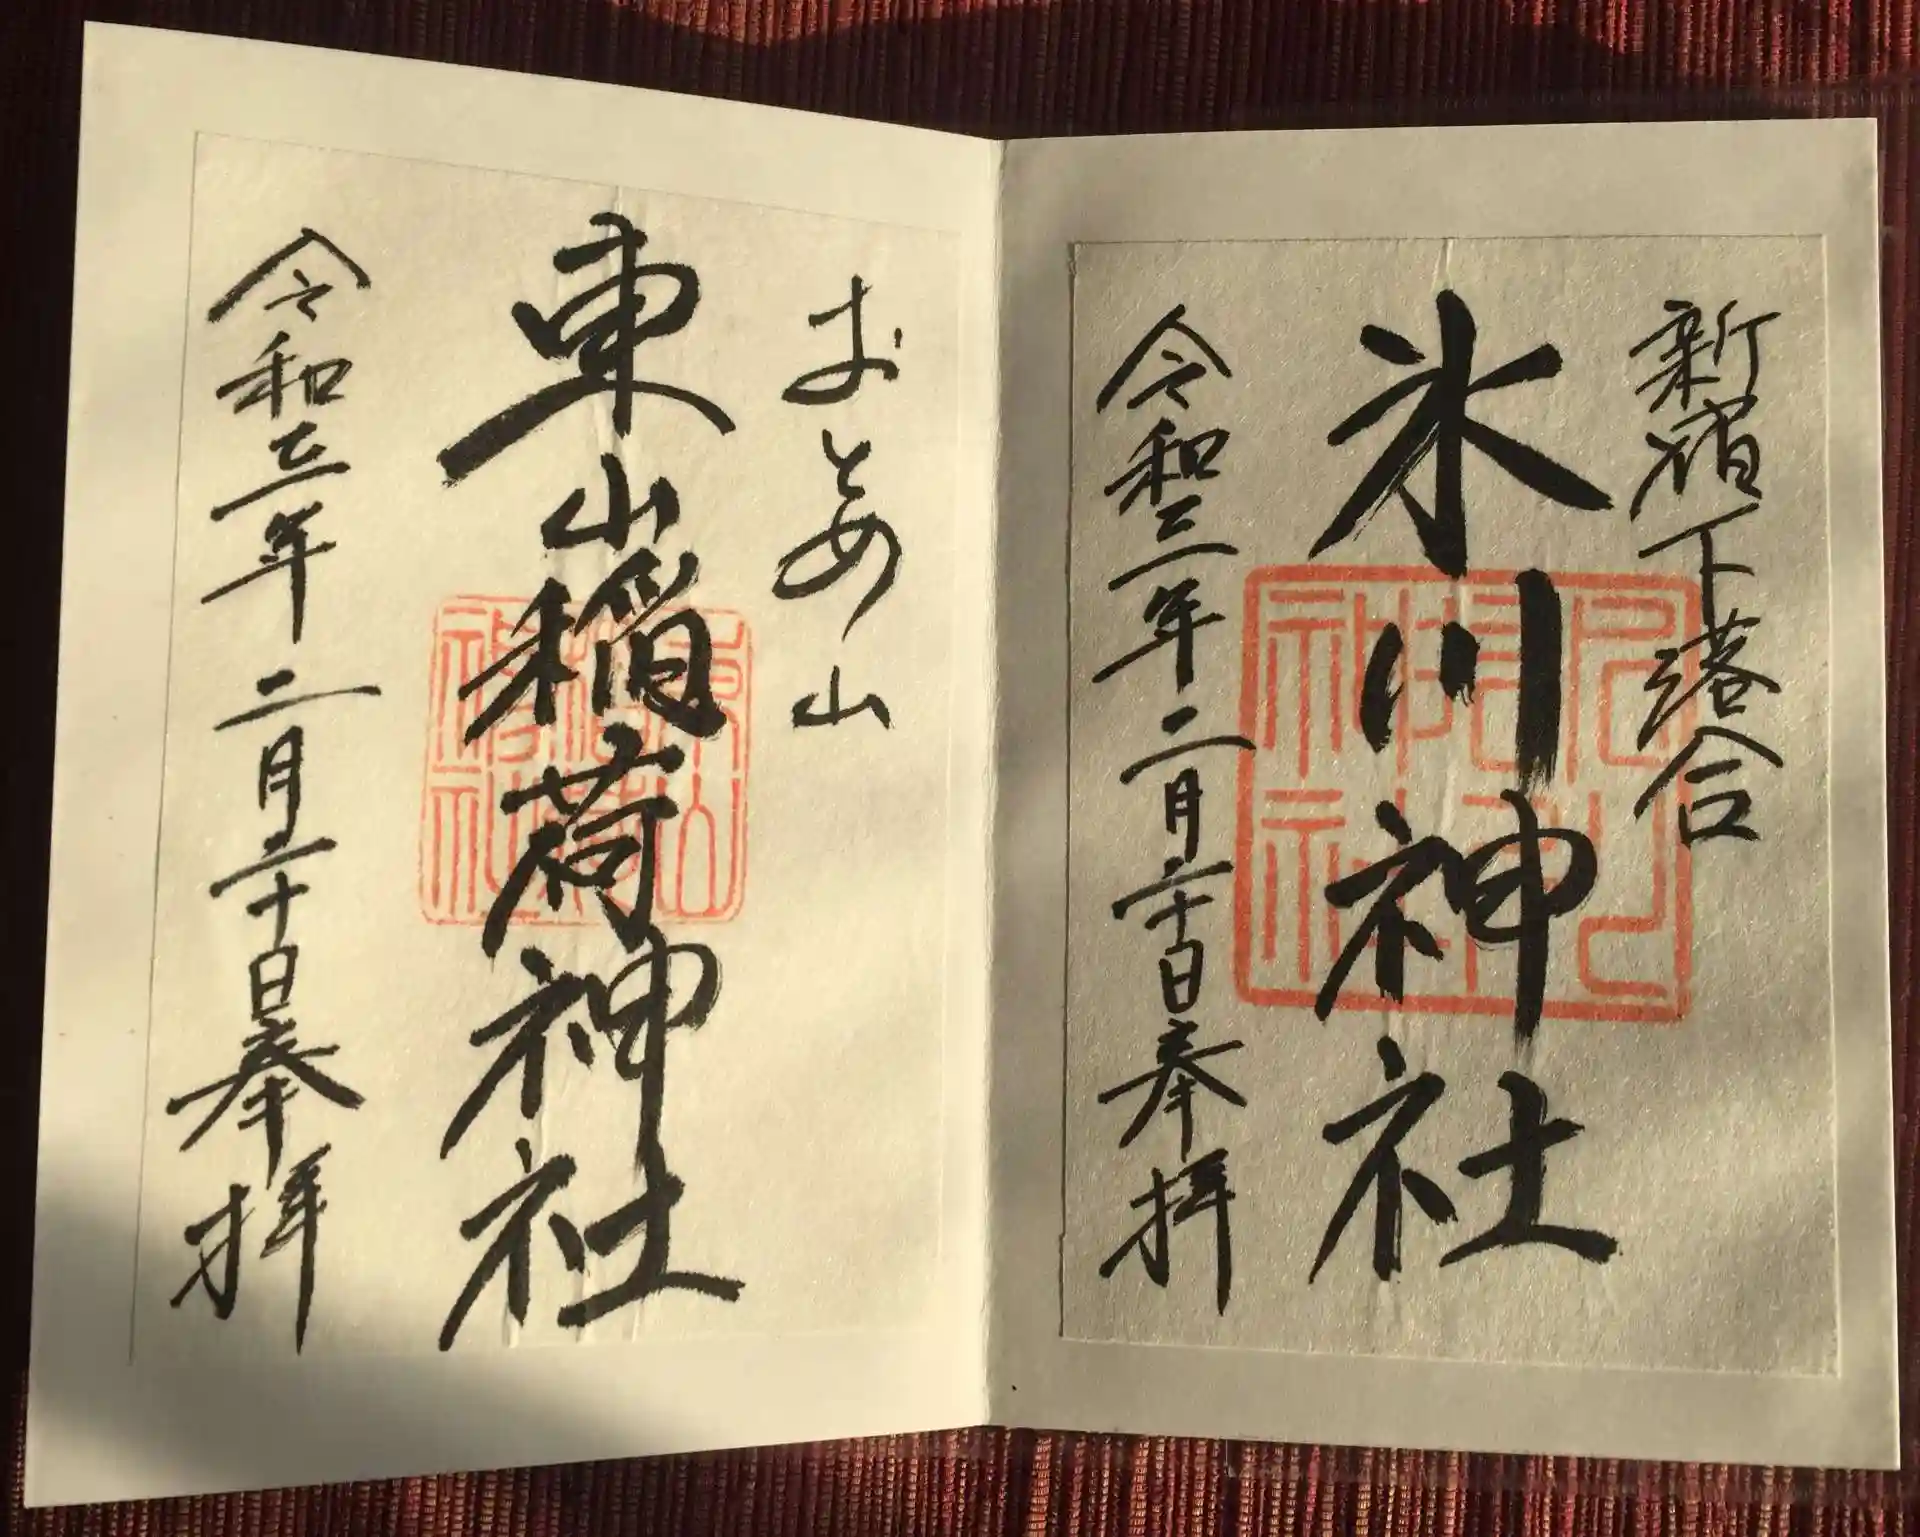 新宿下落合
氷川神社
令和三年二月二十日奉拝
おとめ山
東山稲荷神社
令和三年二月二十日奉拝